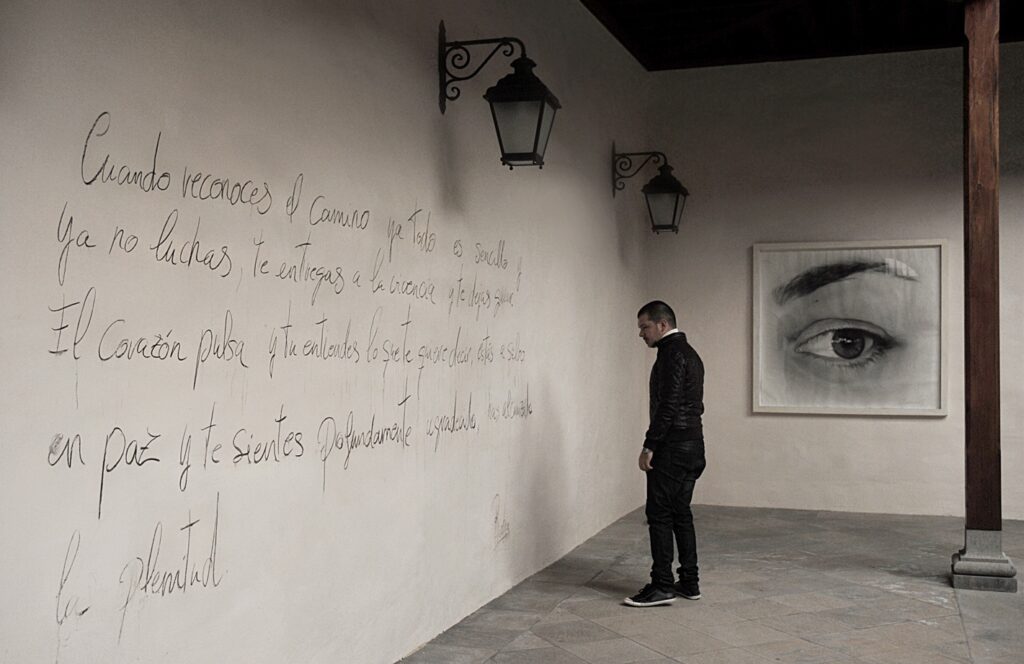 Cuando reconoces el camino ya todo es sencillo y
ya no luchas, te entregas a la creencia y te dejas guiar.
El Corazón pulsa y tu entiendes lo que te quiere decir, estás a salvo
en paz y te sientes profundamente agradecida, has alcanzado
la plenitud